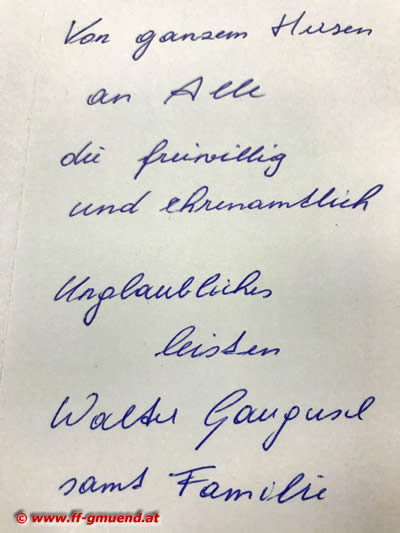 Von ganzem Herzen
an Alle
die freiwillig
und ehrenamtlich
Unglaubliches
leisten
Walter
samt Familie
© www.ff-gmuend.at